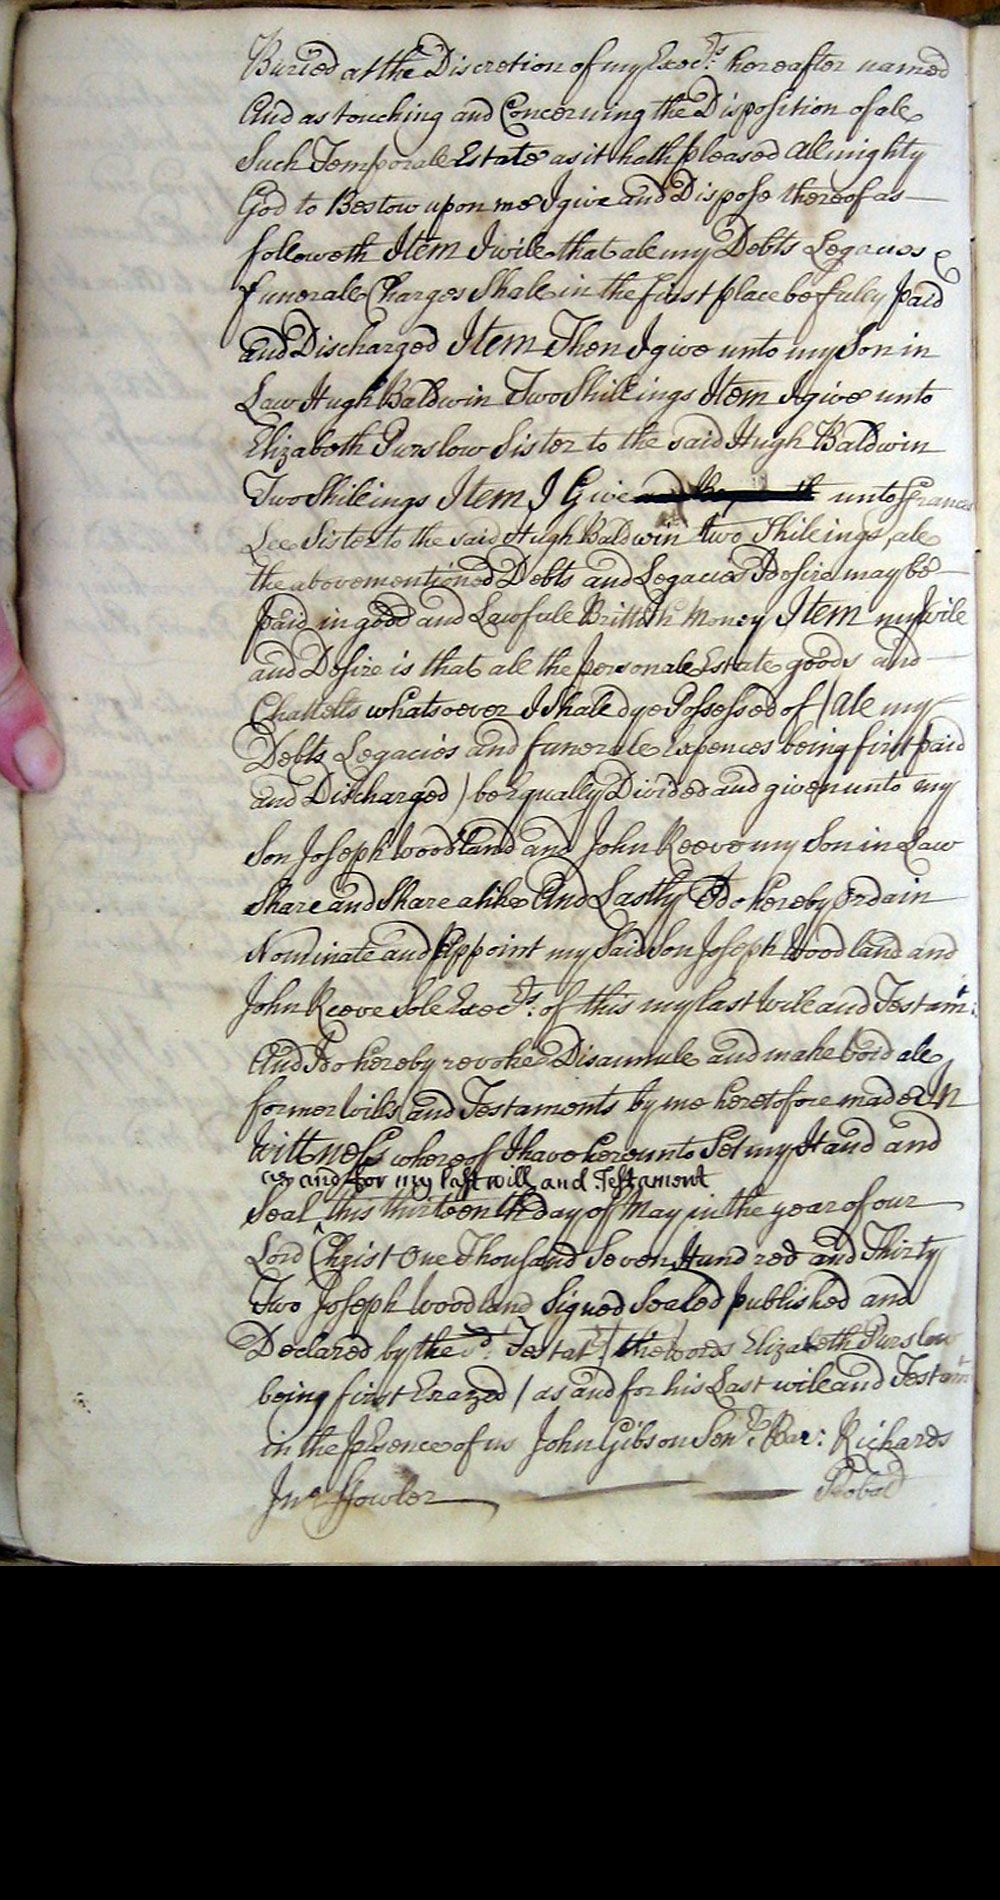 Buried at the Discretion of my Execrs: hereafter named
And as touching and Concerning the Disposition of all
Such Temporall Estate as it hath pleased Allmighty
God to Bestow upon me I give and Dispose thereof as
followeth Item I will that all my Debts Legacies &
funerall Charges Shall in the first place be fully paid
and Discharged Item Then I give unto my Son in
Law Hugh Baldwin Two Shillings Item I give unto
Elizabeth Purslow Sister to the said Hugh Baldwin
Two Shillings Item I Give unto ffrances
Lee Sister to the said Hugh Baldwin two Shillings, all
the abovementioned Debts and Legacies I desire may be
paid in good and Lawfull Brittish Money Item my will
and Desire is that all the personall Estate goods and
Chattells whatsoever I Shall dye Possessed of / all my
Debts Legacies and funerall Expences being first paid
and Discharged ) be Equally Divided and given unto my
Son Joseph Woodland and John Reeve my Son in Law
Share and Share alike And Lastly I do hereby Ordain
Nominate and Appoint my Said Son Joseph Woodland and
John Reeve Sole Execrs: of this my last Will and Testamt:
And I do hereby revoke Disannull and make void all
former Wills and Testaments by me heretofore made In
Wittness whereof I have hereunto Set my Hand and
as and for my last will and Testament
Seal ^ this thirteenth day of May in the year of our
Lord Christ One Thousand Seven Hundred and Thirty
Two Joseph Woodland Signed Sealed published and
Declared by the sd. Testatr / the words Elizabeth Purslow
being first Erazed / as and for his Last will and Testamt
in the psence of us John Gibson Senr: Bar: Richards
Jno. ffowler Probat